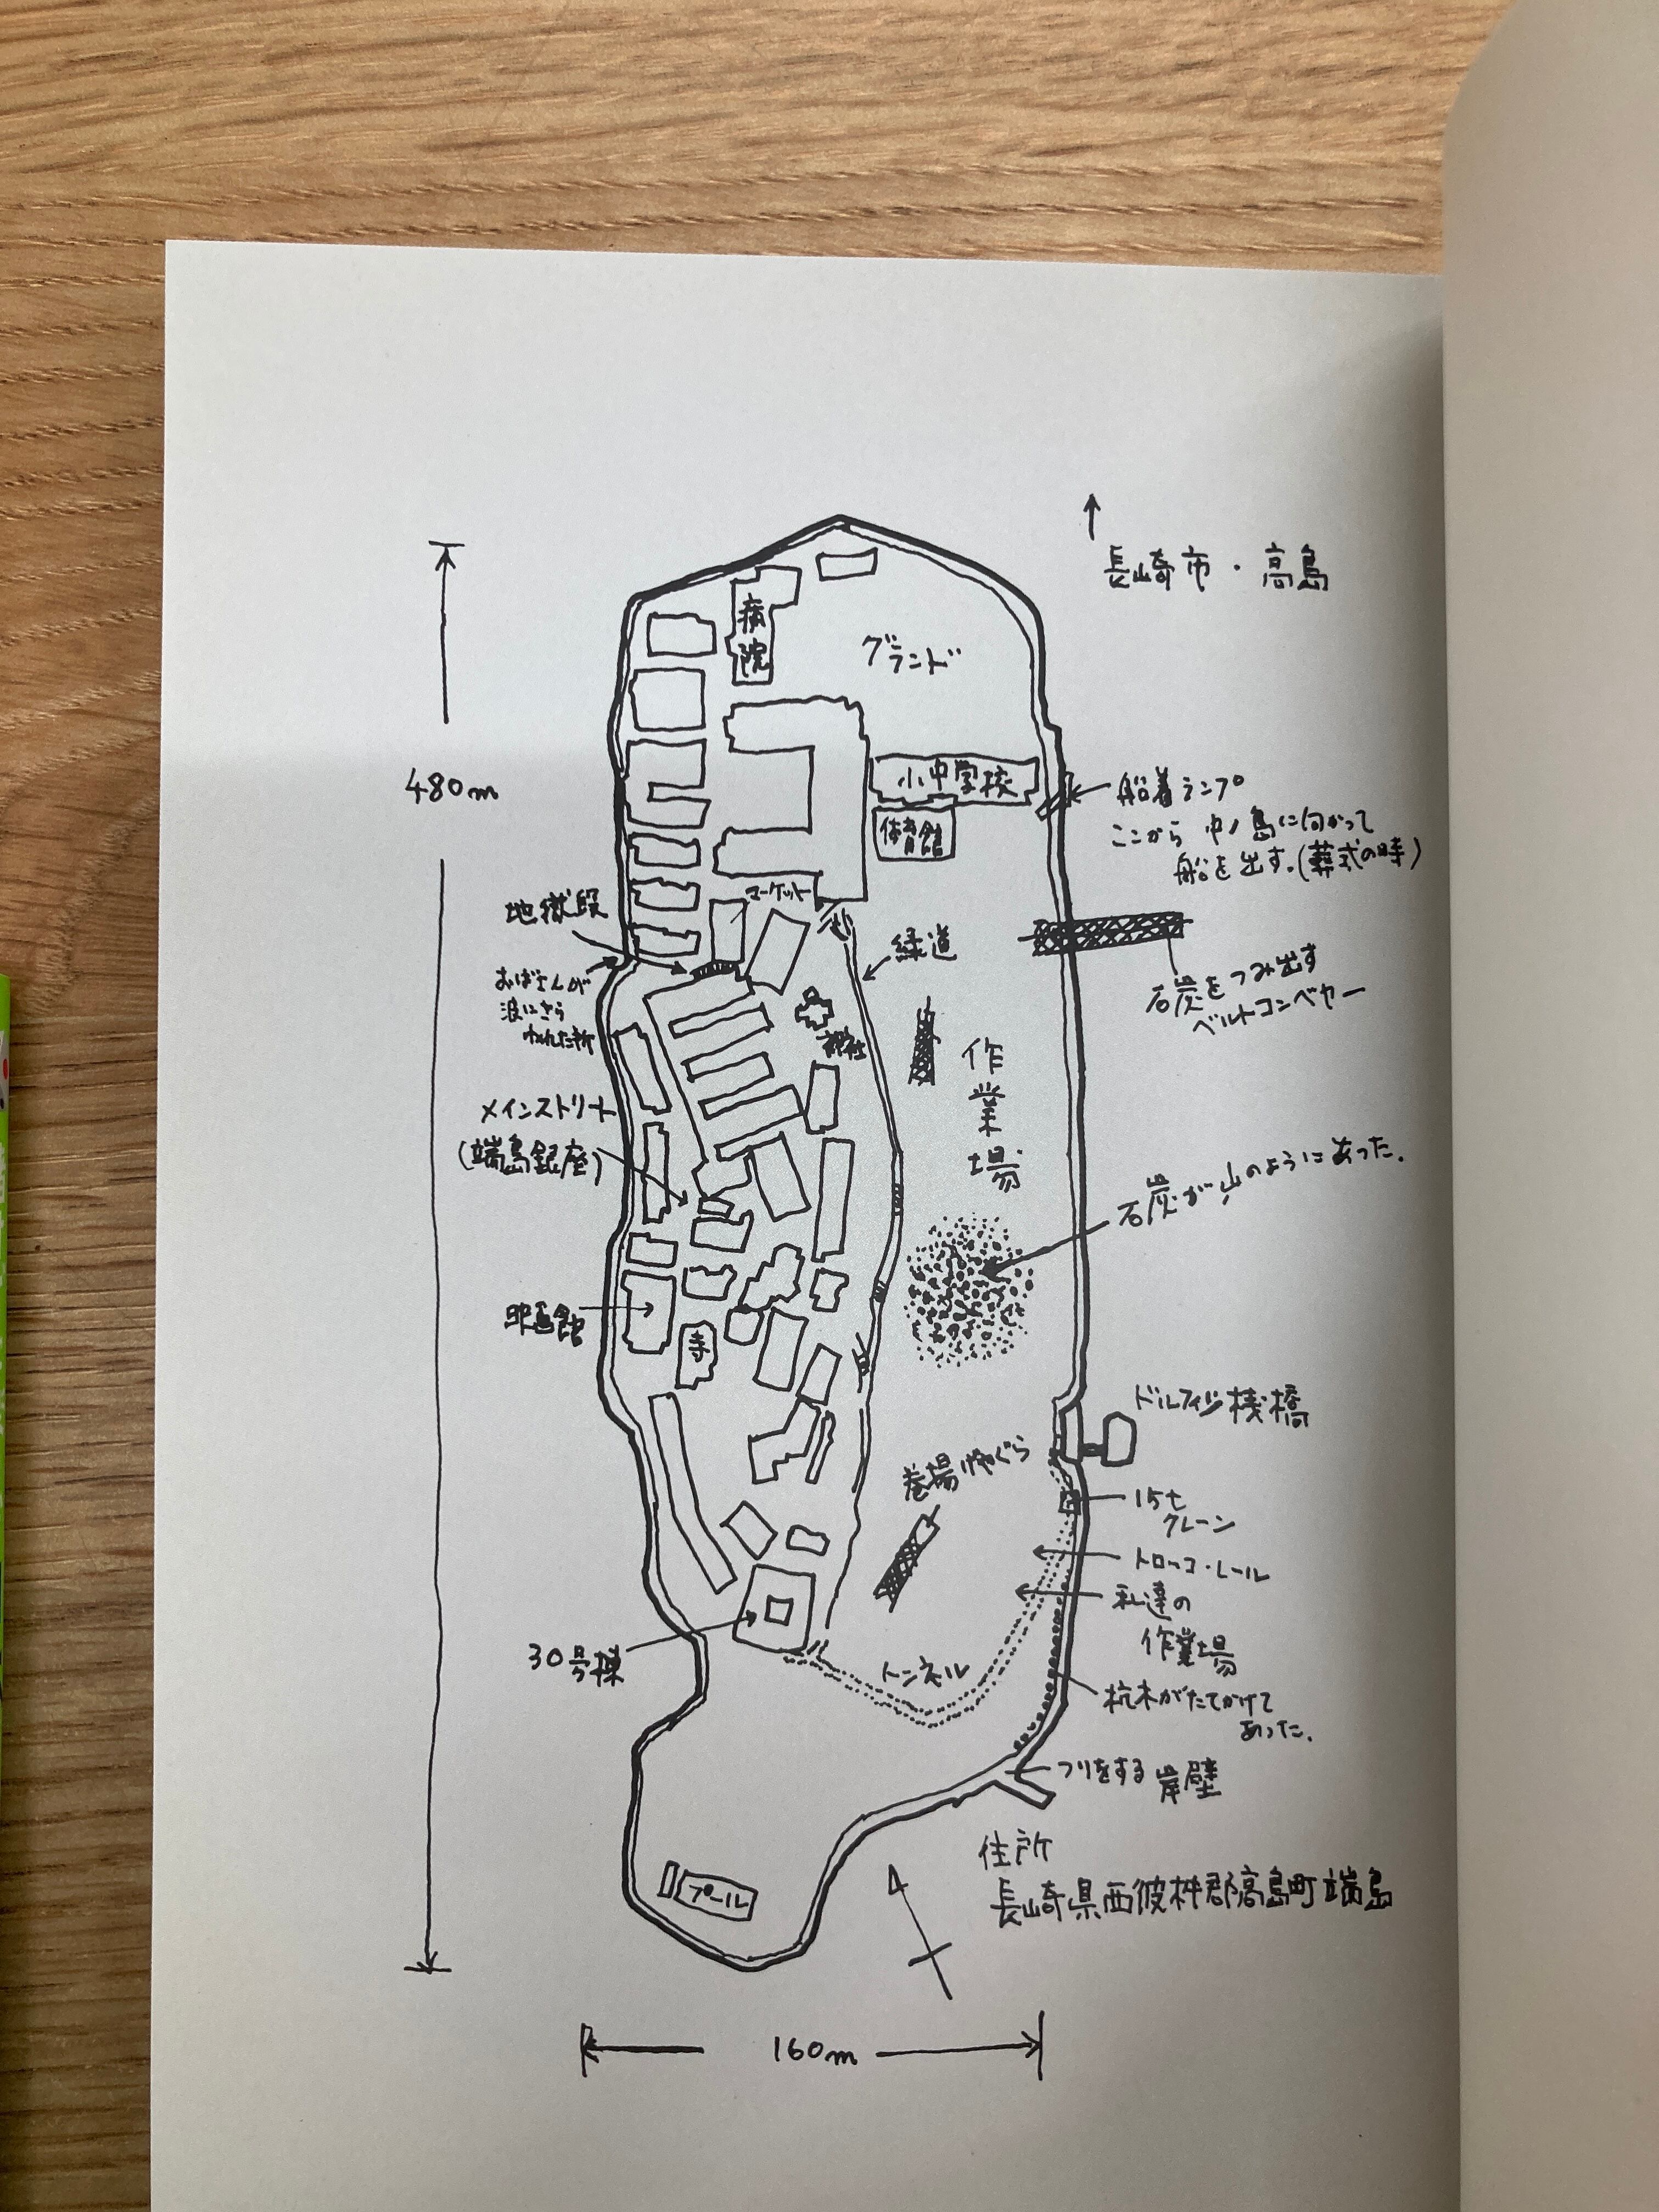 長崎市・高島
病院
グランド
480m
小中学校
体育館
船着ランプ
ここから 中ノ島に向かって
船を出す。(葬式の時)
マーケット
地獄段
緑道
おばさんが
波にさら
われた所
石炭をつみ出す
ベルトコンベヤー
神社
作業場
メインストリート
(端島銀座)
石炭が山のようにあった.
映画館
寺
ドルフィン桟橋
巻揚げやぐら
15t
クレーン
トロッコ・レール
私達の
作業場
30号棟
トンネル
杭木がたてかけて
あった.
ツリをする岸壁
プール
住所
長崎県西彼杵郡高島町端島
160m